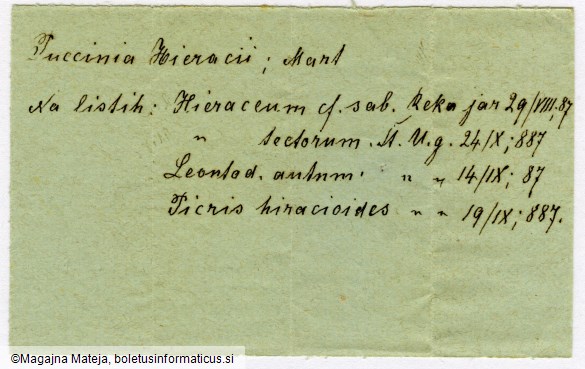 Puccinia Hieracii; Mart
Na listih: Hieraceum cf. sab. Reka jar 29/VIII; 87
" tectorum. St. U. g. 24/IX; 887
Leontod. autnm. " " 14/IX; 87
Picris hiracioides " " 19/IX; 887.
©Magajna Mateja, boletusinformaticus.si